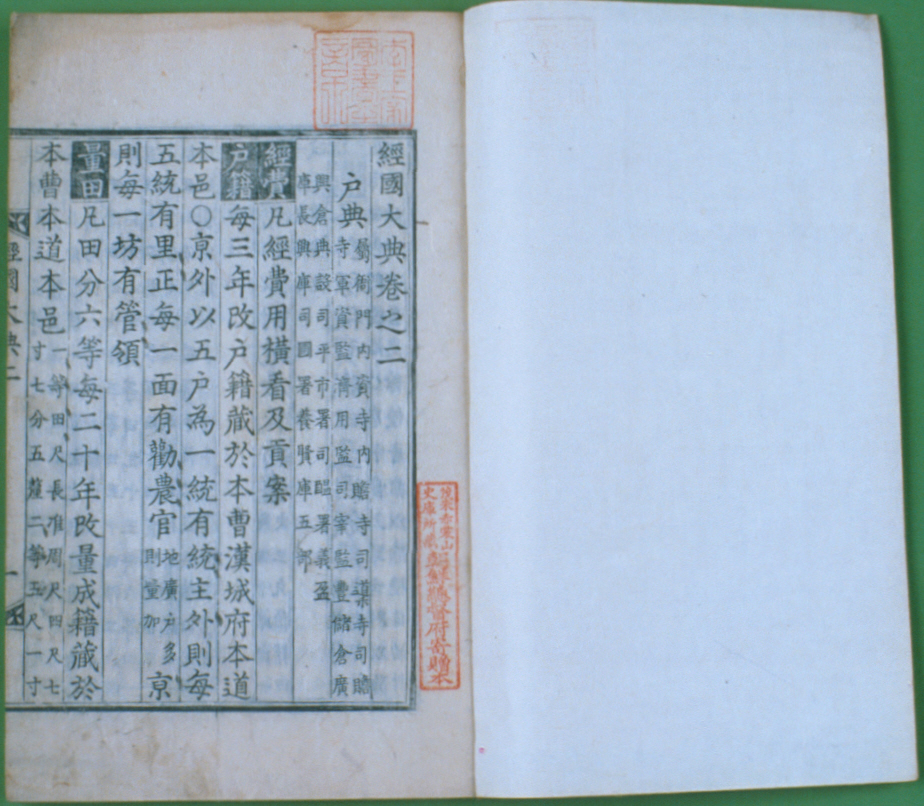 經國大典卷之二
户典
屬衙門内資寺内贍寺司䆃寺司贍
寺軍資監濟用監司宰監豊儲倉廣
興倉典設司平市署司醞署義盈
庫長興庫司圃署養賢庫五部
經費凡經費用橫看及貢案
户籍每三年改户籍藏於本曹漢城府本道
本邑〇京外以五户為一統有統主外則每
五統有里正每一面有勸農官地廣户多則量加京
則每一坊有管領
量田凡田分六等每二十年改量成籍藏於
本曹本道本邑
一等田尺長准周尺四尺七
寸七分五釐二等五尺一寸
經國大典二
朝鮮總督府寄贈本